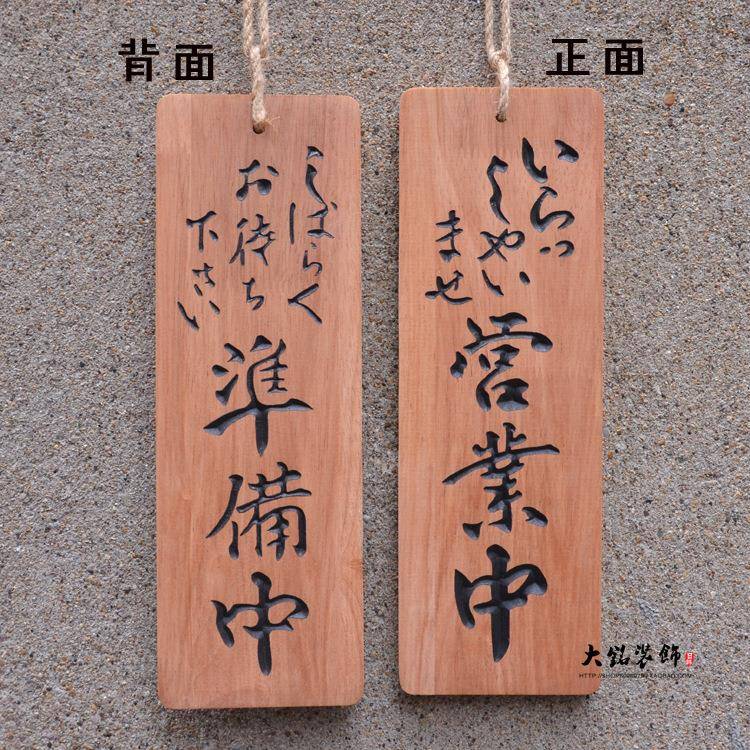 背面
しばらく
お待ち
下さい
準備中
正面
いらっ
しゃい
ませ
営業中
大銘裝飾